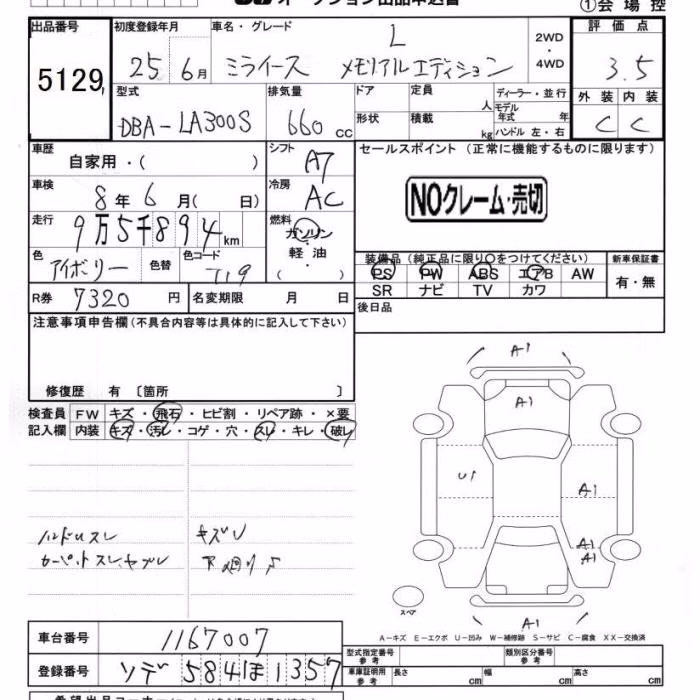 オークション出品申込書
①会場控
出品番号 初度登録年月 車名・グレード 2WD・4WD 評価点
5129 25年6月 ミライース L メモリアルエディション 3.5
型式 排気量 ドア 定員 人 ディーラー・並行 外装 内装
DBA-LA300S 660cc 形状 積載 kg モデル年式 年 ハンドル 左・右 C C
車歴 自家用・( ) シフト A7 セールスポイント (正常に機能するものに限ります)
車検 8年6月( 日) 冷房 AC NOクレーム・売切
走行 9万5千894km 燃料 ガソリン・軽油 ( )
色 アイボリー 色替 色コード T19 装備品 (純正品に限り○をつけてください) 新車保証書
PS PW ABS エアB AW 有・無
SR ナビ TV カワ
R券 7320円 名変期限 月 日 後日品
注意事項申告欄(不具合内容等は具体的に記入して下さい)
修復歴 有 〔箇所 〕
検査員 FW キズ・飛石・ヒビ割・リペア跡・×要
記入欄 内装 キズ・汚レ・コゲ・穴・スレ・キレ・破レ
ハンドルスレ キズU
カーペットスレ,ヤブレ 下廻りS
A1
A1
U1 A1
A1
A1
A1
スペア
A-キズ E-エクボ U-凹み W-補修跡 S-サビ C-腐食 XX-交換済
車台番号 1167007 型式指定番号 参考 類別区分番号 参考
登録番号 ソデ 584 ほ 1357 車庫証明用 参考 長さ cm 幅 cm 高さ cm